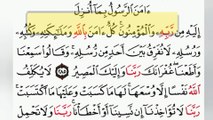 ءَامَنَ ٱلرَّسُولُ بِمَآ أُنزِلَ
إِلَيْهِ مِن رَّبِّهِۦ وَٱلْمُؤْمِنُونَ ۚ كُلٌّ ءَامَنَ بِٱللَّهِ وَمَلَـٰٓئِكَتِهِۦ وَكُتُبِهِۦ
وَرُسُلِهِۦ لَا نُفَرِّقُ بَيْنَ أَحَدٍ مِّن رُّسُلِهِۦ ۚ وَقَالُوا۟ سَمِعْنَا
وَأَطَعْنَا ۖ غُفْرَانَكَ رَبَّنَا وَإِلَيْكَ ٱلْمَصِيرُ ٢٨٥ لَا يُكَلِّفُ
ٱللَّهُ نَفْسًا إِلَّا وُسْعَهَا ۚ لَهَا مَا كَسَبَتْ وَعَلَيْهَا مَا ٱكْتَسَبَتْ ۗ
رَبَّنَا لَا تُؤَاخِذْنَآ إِن نَّسِينَآ أَوْ أَخْطَأْنَا ۚ رَبَّنَا وَلَا تَحْمِلْ